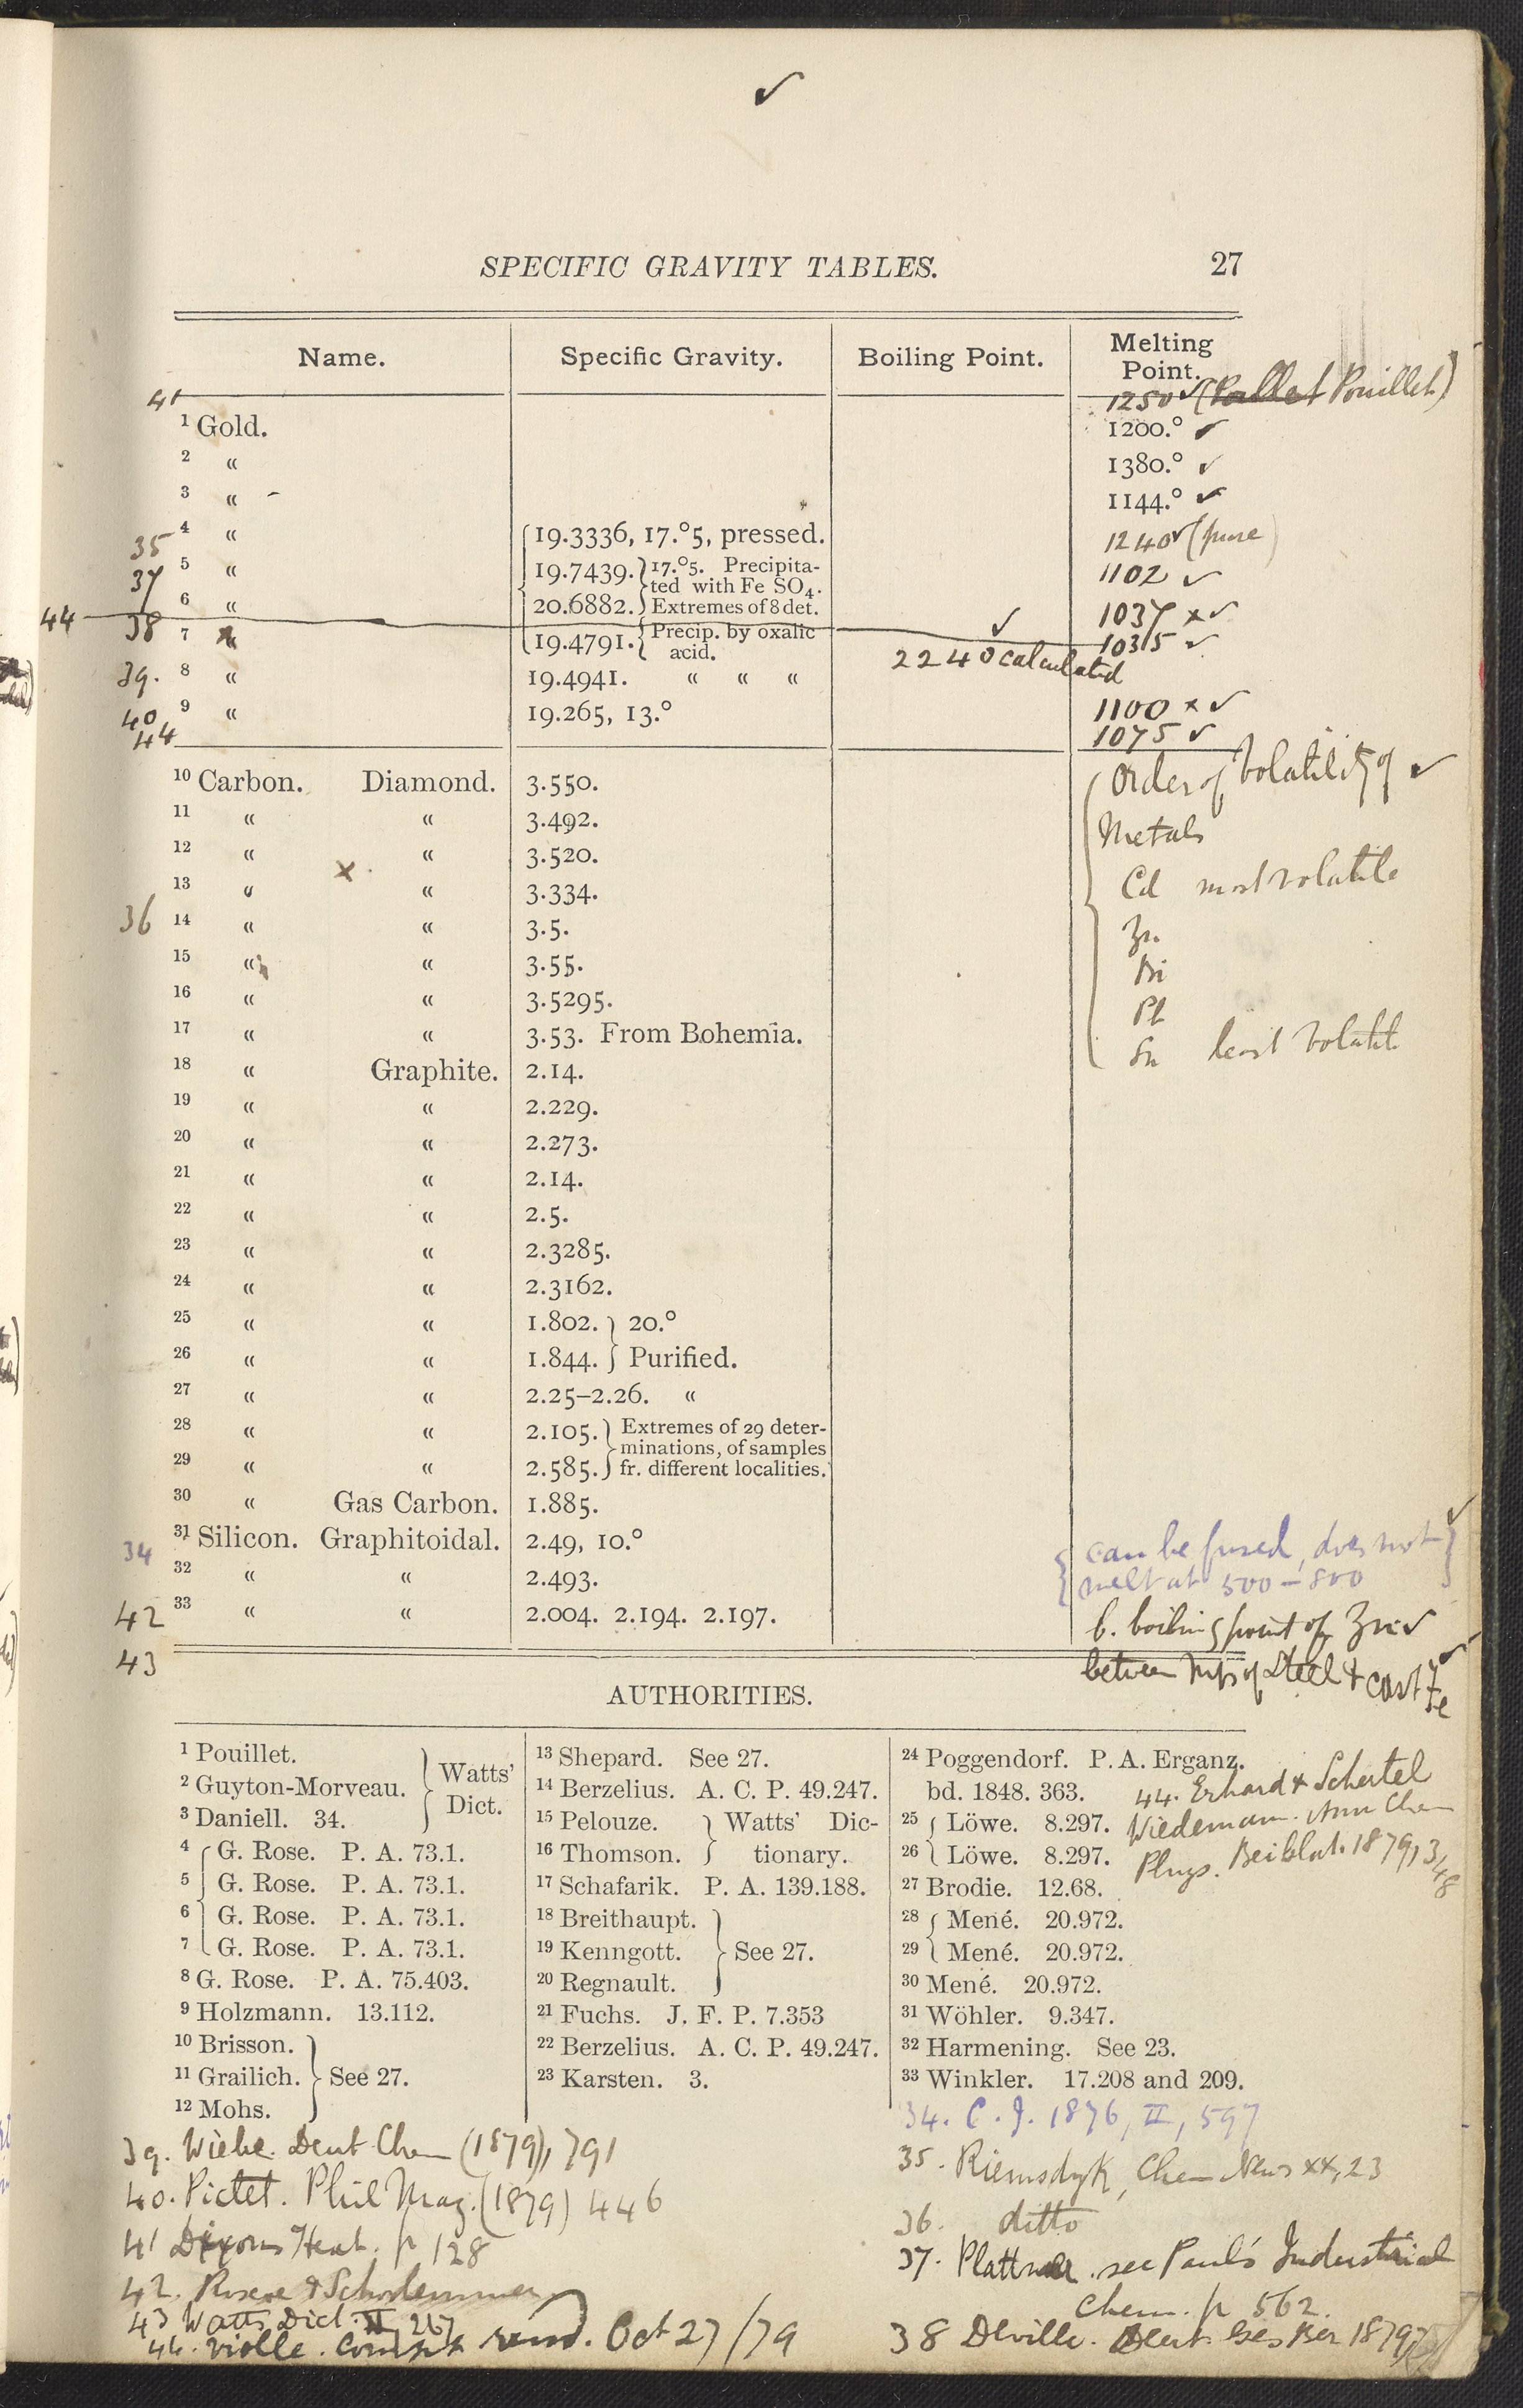 ✓
SPECIFIC GRAVITY TABLES. 27
Name. Specific Gravity. Boiling Point. Melting Point.
41 1250 ✓ (Pouillet)
1 Gold. 1200.° ✓
2 « 1380.° ✓
3 « 1144.° ✓
35 4 « 19.3336, 17.°5, pressed. 1240 ✓ (pure)
37 5 « 19.7439. 17.°5. Precipita- 1102 ✓
ted with Fe SO4.
6 « 20.6882. Extremes of 8 det. 1037 × ✓
44 38 7 « 19.4791. Precip. by oxalic acid. ✓ 1035 ✓
2240 calculated
39. 8 « 19.4941. « « «
40 9 « 19.265, 13.° 1100 × ✓
44 1075 ✓
10 Carbon. Diamond. 3.550. Order of Volatility of ✓
11 « « 3.492. Metals
12 « « 3.520.
13 « « 3.334. Cd most volatile
36 14 « « 3.5. Zn
15 « « 3.55. Bi
16 « « 3.5295. Pb
17 « « 3.53. From Bohemia. Sn least volatile
18 « Graphite. 2.14.
19 « « 2.229.
20 « « 2.273.
21 « « 2.14.
22 « « 2.5.
23 « « 2.3285.
24 « « 2.3162.
25 « « 1.802. 20.°
26 « « 1.844. Purified.
27 « « 2.25–2.26. «
28 « « 2.105. Extremes of 29 deter-
minations, of samples
29 « « 2.585. fr. different localities.
30 « Gas Carbon. 1.885.
31 Silicon. Graphitoidal. 2.49, 10.° can be fused, does not ✓
34 32 « « 2.493. melt at 500–800
42 33 « « 2.004. 2.194. 2.197. b. boiling point of Zn ✓
43 between mps of Steel & cast Fe ✓
AUTHORITIES.
1 Pouillet.
2 Guyton-Morveau. Watts' Dict.
3 Daniell. 34.
4 G. Rose. P. A. 73.1.
5 G. Rose. P. A. 73.1.
6 G. Rose. P. A. 73.1.
7 G. Rose. P. A. 73.1.
8 G. Rose. P. A. 75.403.
9 Holzmann. 13.112.
10 Brisson.
11 Grailich. See 27.
12 Mohs.
13 Shepard. See 27.
14 Berzelius. A. C. P. 49.247.
15 Pelouze. Watts' Dic-
16 Thomson. tionary.
17 Schafarik. P. A. 139.188.
18 Breithaupt.
19 Kenngott. See 27.
20 Regnault.
21 Fuchs. J. F. P. 7.353
22 Berzelius. A. C. P. 49.247.
23 Karsten. 3.
24 Poggendorf. P. A. Erganz.
bd. 1848. 363.
25 Löwe. 8.297.
26 Löwe. 8.297.
27 Brodie. 12.68.
28 Mené. 20.972.
29 Mené. 20.972.
30 Mené. 20.972.
31 Wöhler. 9.347.
32 Harmening. See 23.
33 Winkler. 17.208 and 209.
44. Erhard & Schertel
Wiedemann. Ann Chem
Phys. Beiblat. 1879, 348
34. C. J. 1876, II, 597
35. Riemsdyk, Chem News xx, 23
36. ditto
37. Plattner. see Paul's Industrial
Chem. p 562.
38 Deville. Deut. Ges Ber 1879
39. Wiebe. Deut Chem (1879), 791
40. Pictet. Phil Mag. (1879) 446
41 Dixons Heat. p 128
42. Roscoe & Schorlemmer
43 Watts Dict. II 267
44. Violle. Compt rend. Oct 27/79